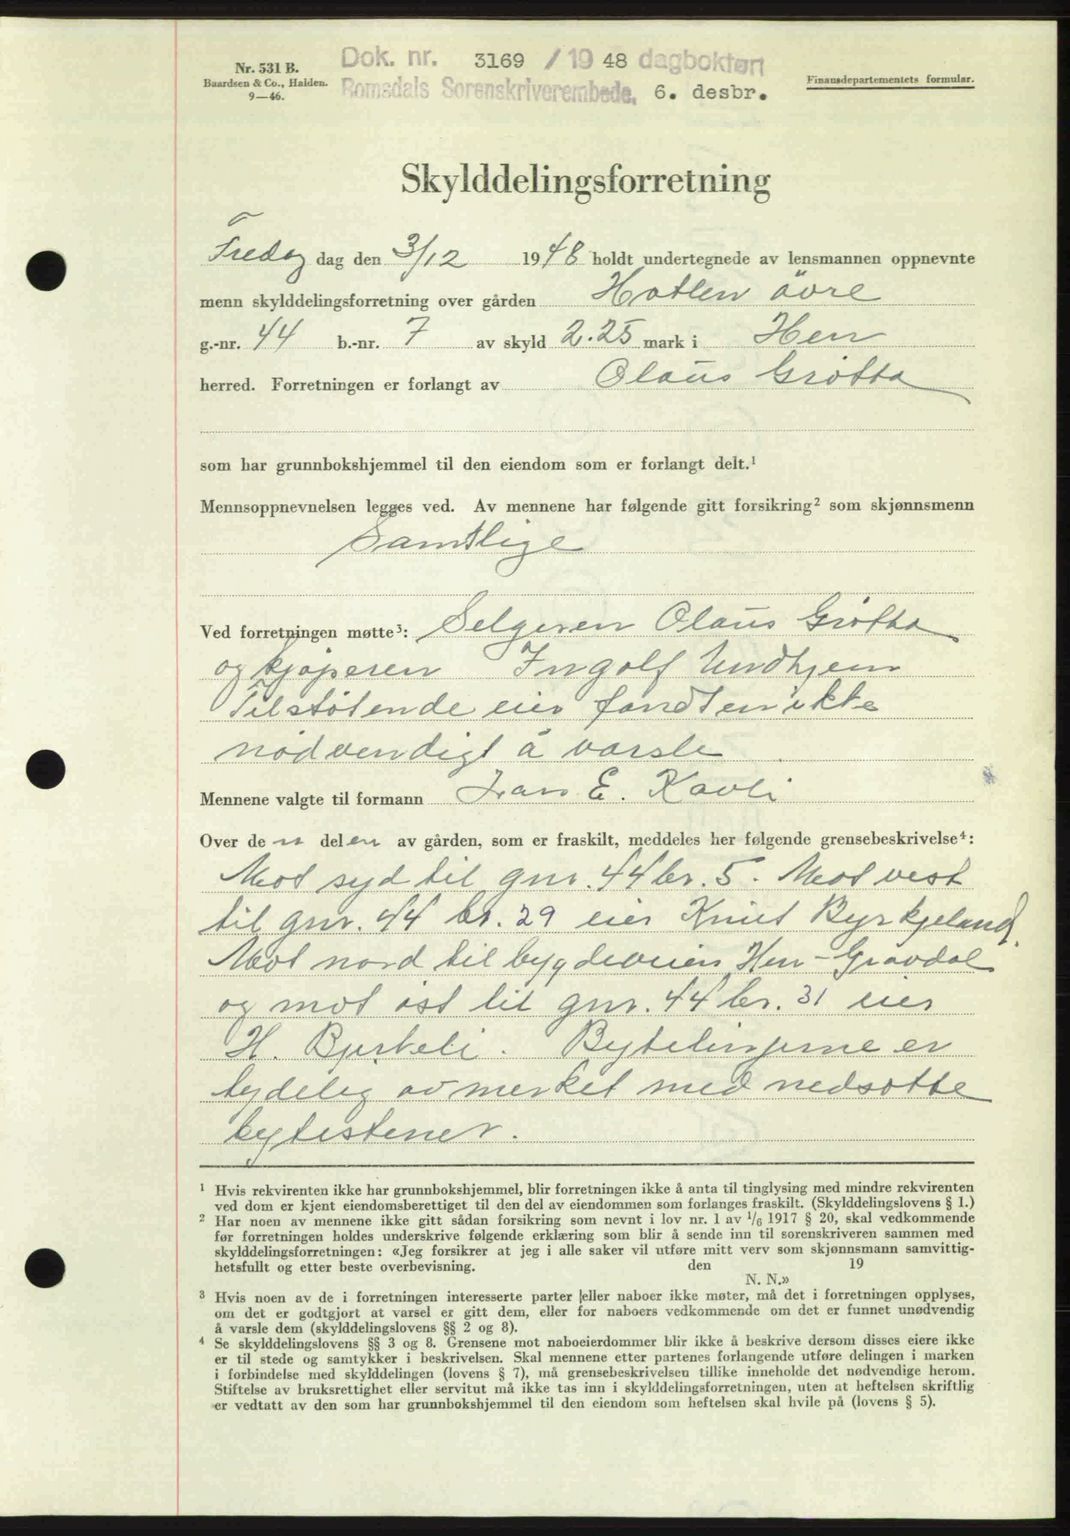 Nr. 531 B.
Baardsen & Co., Halden.
9—46.
Dok. nr. 3169 / 19 48 dagbokført
Romsdals Sorenskriverembede, 6. desbr.
Finansdepartementets formular.
Skylddelingsforretning
Fredag dag den 3/12 1948 holdt undertegnede av lensmannen oppnevnte
menn skylddelingsforretning over gården Hatlen övre
g.-nr. 44 b.-nr. 7 av skyld 2.25 mark i Hen
herred. Forretningen er forlangt av Olaus Grötta
som har grunnbokshjemmel til den eiendom som er forlangt delt.¹
Mennsoppnevnelsen legges ved. Av mennene har følgende gitt forsikring² som skjønnsmenn
Samtlige
Ved forretningen møtte³: Selgeren Olaus Grötta
og kjöperen Ingolf Undhjem
Tilstötende eier fandten ikke
nödvendigt å varsle
Mennene valgte til formann E. Kavli
Over den delen av gården, som er fraskilt, meddeles her følgende grensebeskrivelse⁴:
Mot syd til gnr. 44 br. 5. Mot vest
til gnr. 44 br. 29 eier Knut Byrkjeland.
Mot nord til bygdeveien Hen-Gravdal
og mot öst til gnr. 44 br. 31 eier
H. Byrkeli. Bytelinjerne er
tydelig avmerket med nedsatte
bytistener.
¹ Hvis rekvirenten ikke har grunnbokshjemmel, blir forretningen ikke å anta til tinglysing med mindre rekvirenten
ved dom er kjent eiendomsberettiget til den del av eiendommen som forlanges fraskilt. (Skylddelingslovens § 1.)
² Har noen av mennene ikke gitt sådan forsikring som nevnt i lov nr. 1 av 1/6 1917 § 20, skal vedkommende
før forretningen holdes underskrive følgende erklæring som blir å sende inn til sorenskriveren sammen med
skylddelingsforretningen: «Jeg forsikrer at jeg i alle saker vil utføre mitt verv som skjønnsmann samvittig-
hetsfullt og etter beste overbevisning. den 19
N. N.»
³ Hvis noen av de i forretningen interesserte parter eller naboer ikke møter, må det i forretningen opplyses,
om det er godtgjort at varsel er gitt dem, eller for naboers vedkommende om det er funnet unødvendig
å varsle dem (skylddelingslovens §§ 2 og 8).
⁴ Se skylddelingslovens §§ 3 og 8. Grensene mot naboeierdommer blir ikke å beskrive dersom disses eiere ikke
er til stede og samtykker i beskrivelsen. Skal mennene etter partenes forlangende utføre delingen i marken
i forbindelse med skylddelingen (lovens § 7), må grensebeskrivelsen tillike inneholde det nødvendige herom.
Stiftelse av bruksrettighet eller servitut må ikke tas inn i skylddelingsforretningen, uten at heftelsen skriftlig
er vedtatt av den som har grunnbokshjemmel til den eiendom som heftelsen skal hvile på (lovens § 5).